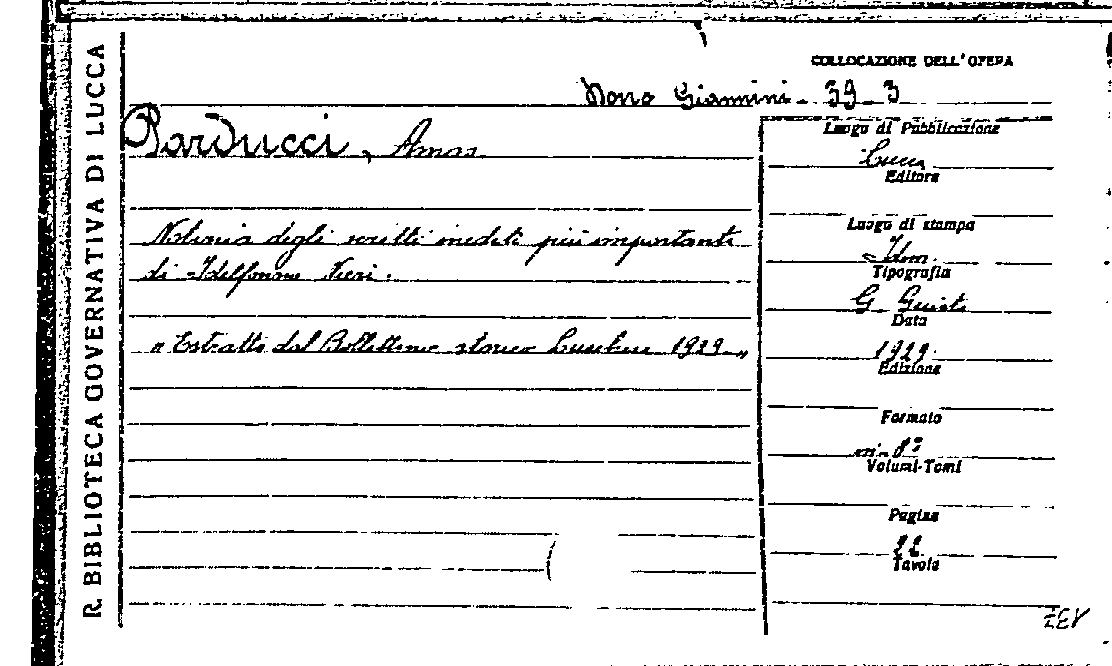 R. BIBLIOTECA GOVERNATIVA DI LUCCA
COLLOCAZIONE DELL'OPERA
Mono Giannini - 39 - 3
Parducci, Amos
Notizia degli scritti inediti più importanti
di Idelfonso Nieri.
"Estratto dal Bollettino storico Lucchese 1929"
Luogo di Pubblicazione
Lucca
Editore
Luogo di stampa
Idem
Tipografia
G. Giusti
Data
1929
Edizione
Formato
in-8º
Volumi-Tomi
Pagine
22
Tavole